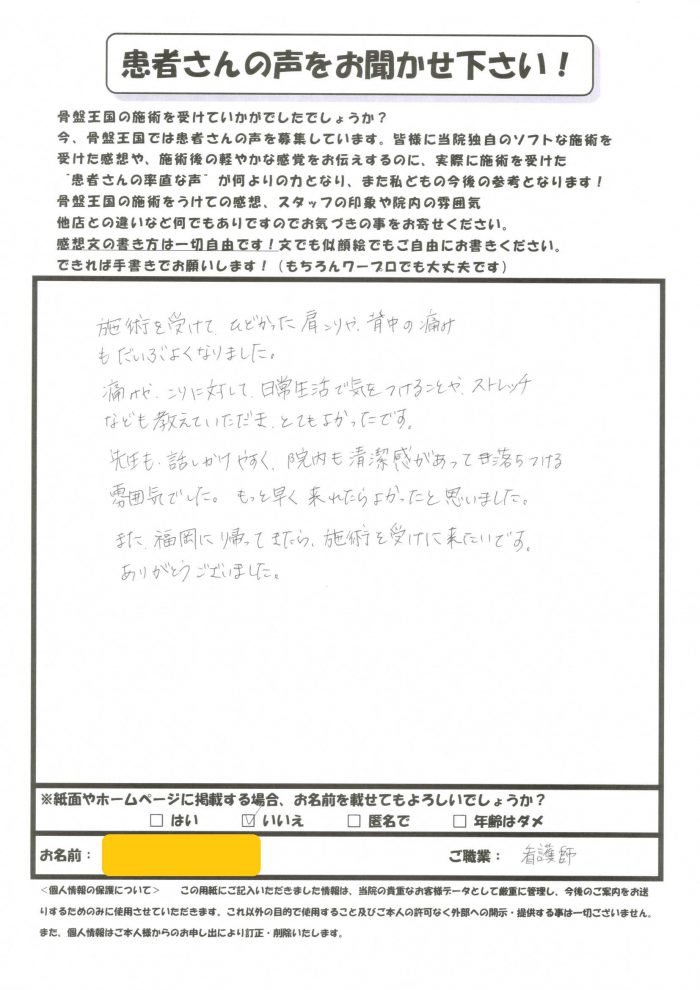 患者さんの声をお聞かせ下さい！
骨盤王国の施術を受けていかがでしたでしょうか？
今、骨盤王国では患者さんの声を募集しています。皆様に当院独自のソフトな施術を
受けた感想や、施術後の軽やかな感覚をお伝えするのに、実際に施術を受けた
"患者さんの率直な声"が何よりの力となり、また私どもの今後の参考となります！
骨盤王国の施術をうけての感想、スタッフの印象や院内の雰囲気
他店との違いなど何でもありですのでお気づきの事をお寄せください。
感想文の書き方は一切自由です！文でも似顔絵でもご自由にお書きください。
できれば手書きでお願いします！（もちろんワープロでも大丈夫です）
施術を受けて、ひどかった肩こりや、背中の痛み
もだいぶよくなりました。
痛みや、こりに対して、日常生活で気をつけることや、ストレッチ
なども教えていただき、とてもよかったです。
先生も、話しかけやすく、院内も清潔感があって落ちつける
雰囲気でした。もっと早く来れたらよかったと思いました。
また、福岡に帰ってきたら、施術を受けに来たいです。
ありがとうございました。
※紙面やホームページに掲載する場合、お名前を載せてもよろしいでしょうか？
□ はい ☑ いいえ □ 匿名で □ 年齢はダメ
お名前： ご職業： 看護師
＜個人情報の保護について＞ この用紙にご記入いただきました情報は、当院の貴重なお客様データとして厳重に管理し、今後のご案内をお送
りするためのみに使用させていただきます。これ以外の目的で使用すること及びご本人の許可なく外部への開示・提供する事は一切ございません。
また、個人情報はご本人様からのお申し出により訂正・削除いたします。